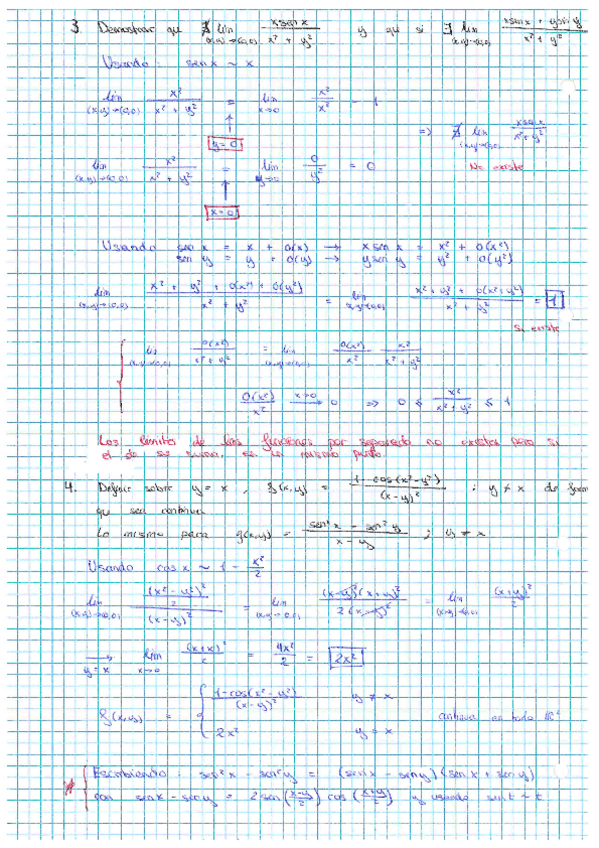 3. Demostrar que ∄ lim (x,y)→(0,0) x sen x / (x² + y²) y que si ∃ lim (x,y)→(0,0) (x sen x + y sen y) / (x² + y²)
Usando: sen x ~ x
lim (x,y)→(0,0) x² / (x² + y²) = lim x→0 x² / x² = 1
y=0
⇒ ∄ lim (x,y)→(0,0) x sen x / (x² + y²)
lim (x,y)→(0,0) x² / (x² + y²) = lim y→0 0 / y² = 0
No existe
x=0
Usando sen x = x + o(x) → x sen x = x² + o(x²)
sen y = y + o(y) → y sen y = y² + o(y²)
lim (x,y)→(0,0) (x² + y² + o(x²) + o(y²)) / (x² + y²) = lim (x,y)→(0,0) (x² + y² + o(x² + y²)) / (x² + y²) = 1
Si existe
lim (x,y)→(0,0) o(x²) / (x² + y²) = lim (x,y)→(0,0) o(x²) / x² · x² / (x² + y²)
o(x²) / x² x→0 → 0 ⇒ 0 ≤ x² / (x² + y²) ≤ 1
Los límites de las funciones por separado no existen pero si
el de su suma, en el mismo punto
4. Definir sobre y = x, f(x,y) = (1 - cos(x² - y²)) / (x - y)² ; y ≠ x de form
que sea continua
Lo mismo para g(x,y) = (sen² x - sen² y) / (x - y) ; y ≠ x
Usando cos x ~ 1 - x²/2
lim (x,y)→(0,0) ((x² - y²)² / 2) / (x - y)² = lim (x,y)→(0,0) (x - y)² (x + y)² / 2(x - y)² = lim (x,y)→(0,0) (x + y)² / 2
→ y=x lim x→0 (x + x)² / 2 = 4x² / 2 = 2x²
f(x,y) = { (1 - cos(x² - y²)) / (x - y)² y ≠ x
continua en todo ℝ²
2x² y = x
* Escribiendo: sen² x - sen² y = (sen x - sen y)(sen x + sen y)
con sen x - sen y = 2 sen((x-y)/2) cos((x+y)/2) y usando sen t ~ t